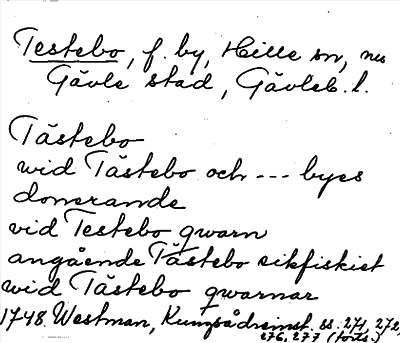 Testebo, f. by, Hille sn, nu
Gävle stad, Gävleb. l.
Tästebo
wid Tästebo och --- byes
donerande
vid Testebo qwarn
angående Tästebo sikfiskiet
wid Tästebo qwarnar
1748. Westman, ss. 271, 272,
276, 277 (forts.)